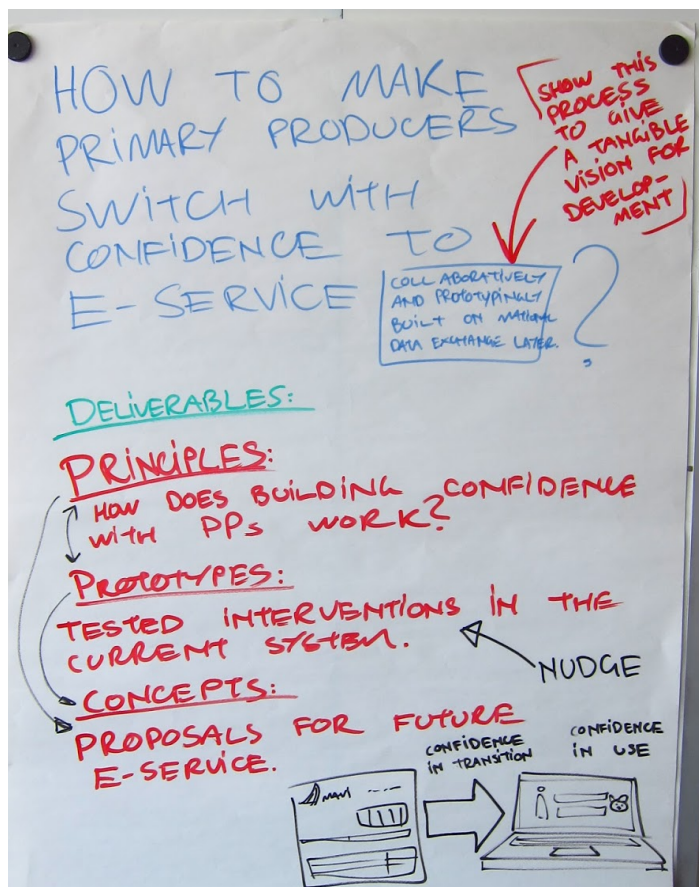 HOW TO MAKE
PRIMARY PRODUCERS
SWITCH WITH
CONFIDENCE TO
E-SERVICE
COLLABORATIVELY
AND PROTOTYPINGLY
BUILT ON NATIONAL
DATA EXCHANGE LAYER.
?
SHOW THIS
PROCESS
TO GIVE
A TANGIBLE
VISION FOR
DEVELOP-
MENT
DELIVERABLES:
PRINCIPLES:
HOW DOES BUILDING CONFIDENCE
WITH PPs WORK?
PROTOTYPES:
TESTED INTERVENTIONS IN THE
CURRENT SYSTEM.
NUDGE
CONCEPTS:
PROPOSALS FOR FUTURE
E-SERVICE.
CONFIDENCE
IN TRANSITION
CONFIDENCE
IN USE
MAVI